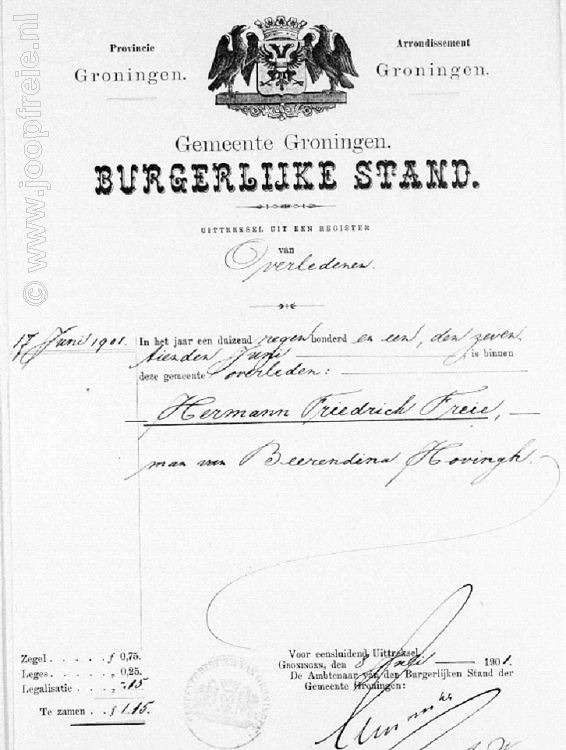 Provincie
Groningen.
Arrondissement
Groningen.
Gemeente Groningen.
BURGERLIJKE STAND.
UITTREKSEL UIT EEN REGISTER
van
Overledenen.
17 Juni 1901. In het jaar een duizend negen honderd en een, den zeven
tienden Juni is binnen
deze gemeente overleden:
Hermann Friedrich Freie,
man van Beerendina Hovingh.
Voor eensluidend Uittreksel,
GRONINGEN, den 8 Juli 1901.
De Ambtenaar van den Burgerlijken Stand der
Gemeente Groningen:
Zegel . . . . . ƒ 0,75.
Leges . . . . . „ 0,25.
Legalisatie . . „ -.15
Te zamen . . ƒ 1.15.
© www.joopfreie.nl